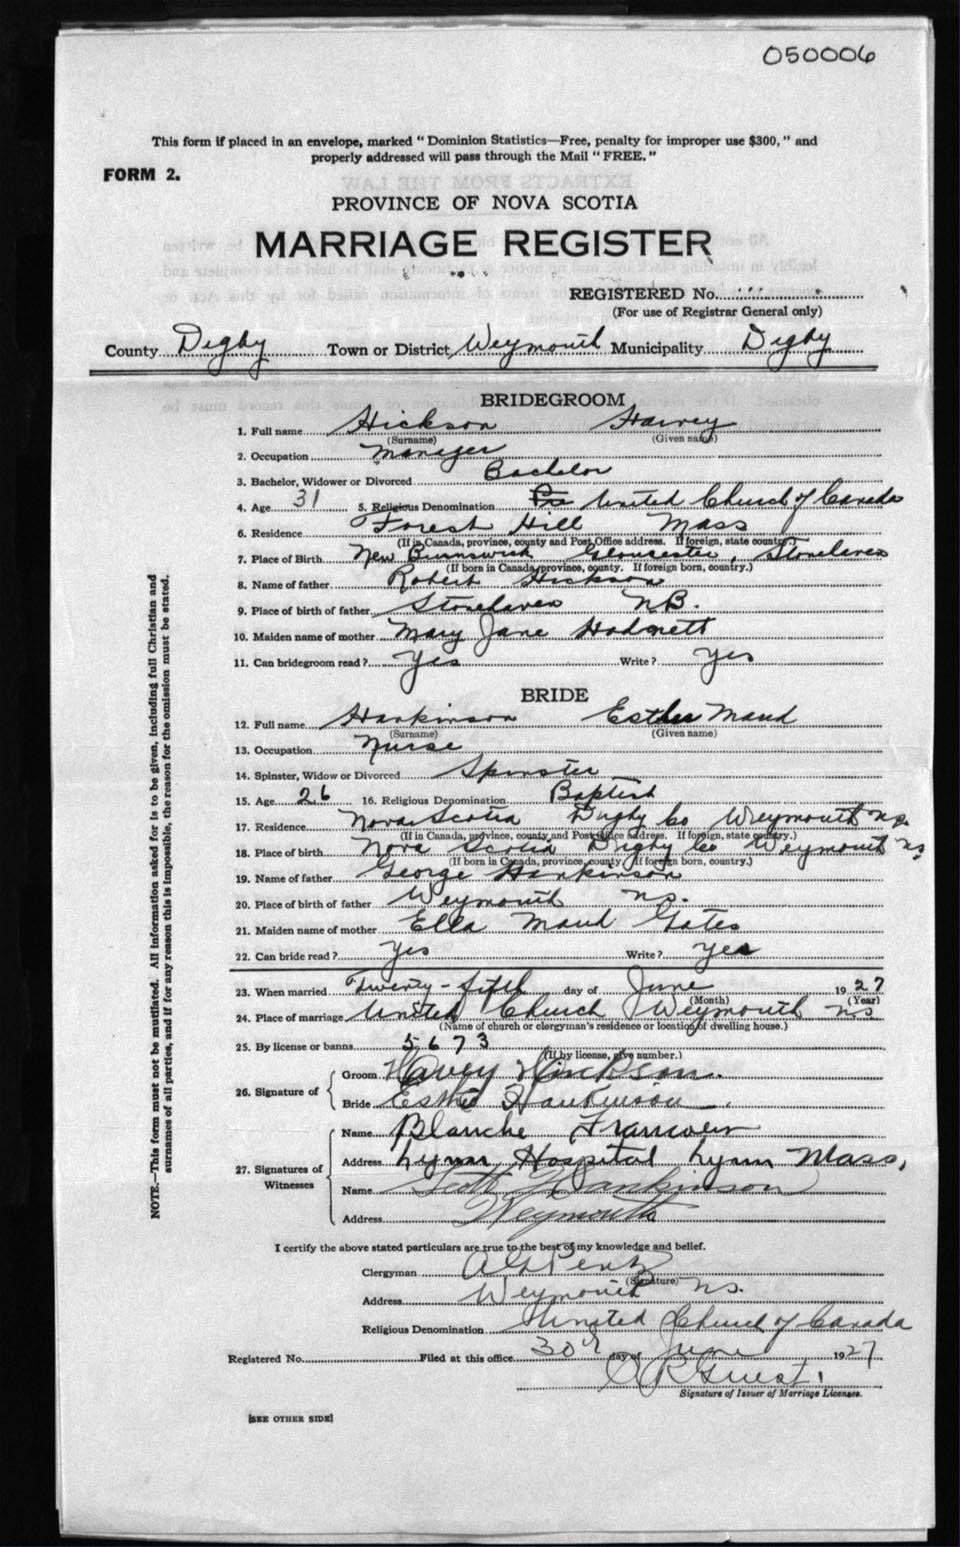 050006
This form if placed in an envelope, marked “ Dominion Statistics—Free, penalty for improper use $300, ” and
properly addressed will pass through the Mail “ FREE. ”
FORM 2.
PROVINCE OF NOVA SCOTIA
MARRIAGE REGISTER
REGISTERED No.
(For use of Registrar General only)
County Digby Town or District Weymouth Municipality Digby
BRIDEGROOM
1. Full name Hickson Harvey
(Surname) (Given name)
2. Occupation Manager
3. Bachelor, Widower or Divorced Bachelor
4. Age 31 5. Religious Denomination United Church of Canada
6. Residence Forest Hill Mass
(If in Canada, province, county and Post Office address. If foreign, state country.)
7. Place of Birth New Brunswick Gloucester, Stonehaven
(If born in Canada, province, county. If foreign born, country.)
8. Name of father Robert Hickson
9. Place of birth of father Stonehaven N.B.
10. Maiden name of mother Mary Jane Hodnett
11. Can bridegroom read? Yes Write? Yes
BRIDE
12. Full name Hankinson Esther Maud
(Surname) (Given name)
13. Occupation Nurse
14. Spinster, Widow or Divorced Spinster
15. Age 26 16. Religious Denomination Baptist
17. Residence Nova Scotia Digby Co Weymouth N.S.
(If in Canada, province, county and Post Office address. If foreign, state country.)
18. Place of birth Nova Scotia Digby Co Weymouth N.S.
(If born in Canada, province, county. If foreign born, country.)
19. Name of father George Hankinson
20. Place of birth of father Weymouth N.S.
21. Maiden name of mother Ella Maud Gates
22. Can bride read? Yes Write? Yes
23. When married Twenty-fifth day of June 1927
(Month) (Year)
24. Place of marriage United Church Weymouth N.S.
(Name of church or clergyman's residence or location of dwelling house.)
25. By license or banns 5673
(If by license, give number.)
26. Signature of Groom Harvey Hickson.
Bride Esther Hankinson.
27. Signatures of Witnesses
Name Blanche
Address Lynn Hospital Lynn Mass.
Name Scott Hankinson
Address Weymouth
I certify the above stated particulars are true to the best of my knowledge and belief.
Clergyman
(Signature)
Address Weymouth N.S.
Religious Denomination United Church of Canada
Registered No. Filed at this office 30th day of June 1927
Signature of Issuer of Marriage Licenses.
[SEE OTHER SIDE]
NOTE.—This form must not be mutilated. All information asked for is to be given, including full Christian and
surnames of all parties, and if for any reason this is impossible, the reason for the omission must be stated.